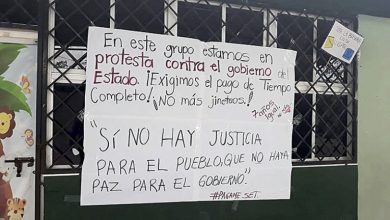 En este grupo estamos en
protesta contra el gobierno de
Estado. ¡Exigimos el pago de Tiempo
Completo! ¡NO más jineteos!
7 años
igual
"SÍ NO HAY JUSTICIA
PARA EL PUEBLO, QUE NO HAYA
PAZ PARA EL GOBIERNO."
#PAGAME.SET.